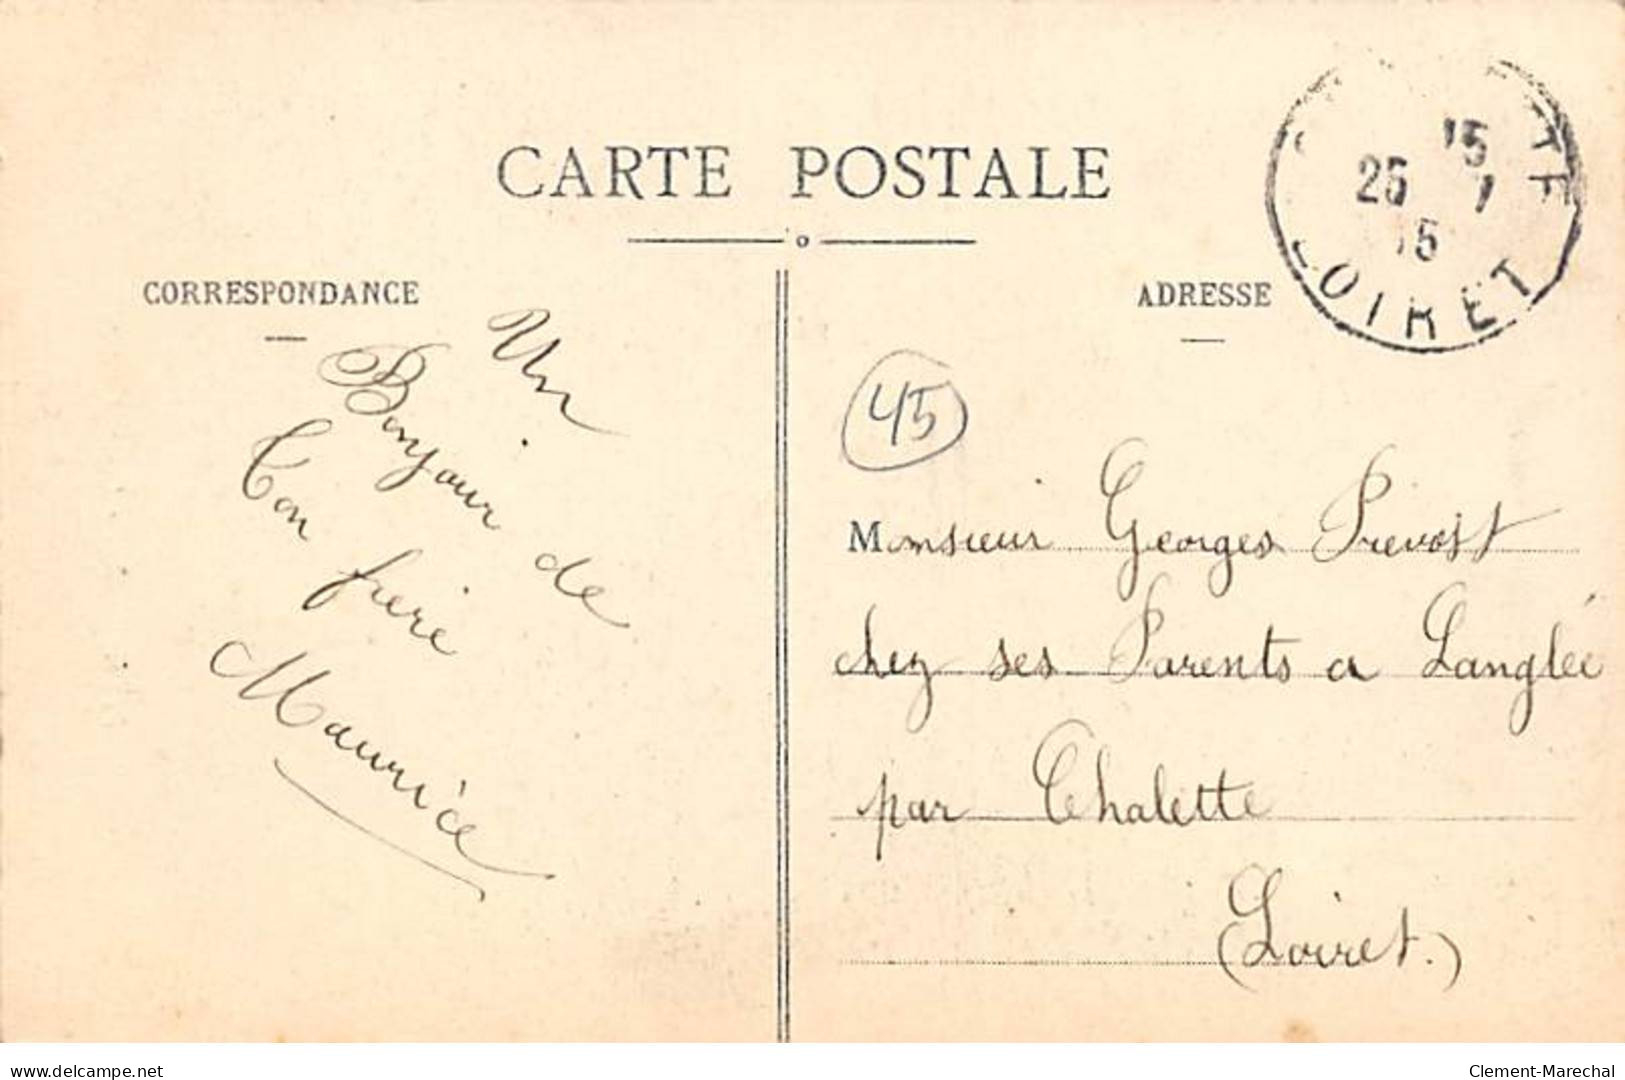 CARTE POSTALE
CORRESPONDANCE
Un
Bonjour de
Ton frère
Maurice
ADRESSE
15
25 1
15
LOIRET
45
Monsieur Georges Prevost
chez ses Parents a Langlée
par Chalette
(Loiret.)
www.delcampe.net
Clement-Marechal